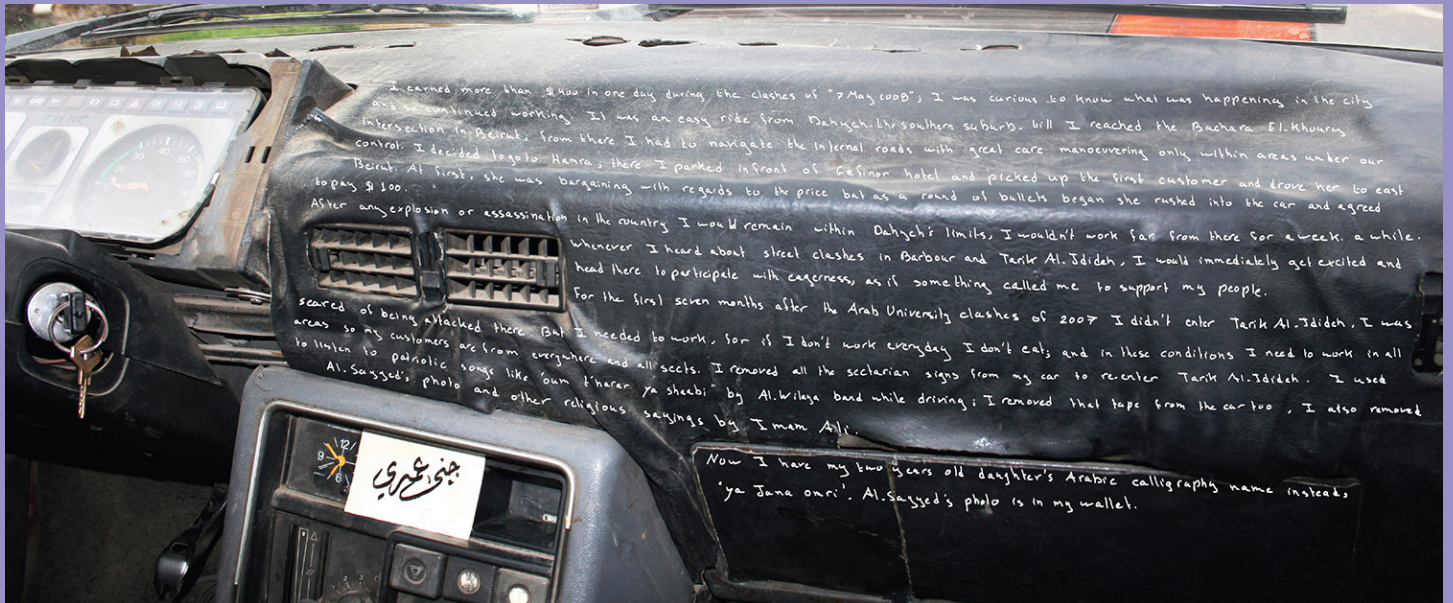 I earned more than $400 in one day during the clashes of "7 May 2008"; I was curious to know what was happening in the city
and so continued working. It was an easy ride from Dahyeh, the southern suburb, till I reached the Bachara El.Khoury
intersection in Beirut, from there I had to navigate the internal roads with great care manoeuvering only within areas under our
control. I decided to go to Hamra; there I parked infront of Gefinor hotel and picked up the first customer and drove her to east
Beirut. At first, she was bargaining with regards to the price but as a round of bullets began she rushed into the car and agreed
to pay $100.
After any explosion or assassination in the country I would remain within Dahyeh's limits, I wouldn't work far from there for a week, a while.
Whenever I heard about street clashes in Barbour and Tarik Al.Jdideh, I would immediately get excited and
head there to participate with eagerness, as if something called me to support my people.
For the first seven months after the Arab University clashes of 2007 I didn't enter Tarik Al.Jdideh, I was
scared of being attacked there. But I needed to work, for if I don't work everyday I don't eat; and in these conditions I need to work in all
areas so my customers are from everywhere and all sects. I removed all the sectarian signs from my car to re-enter Tarik Al.Jdideh. I used
to listen to patriotic songs like 'oum t'harar ya shaabi' by Al.Wilaya band while driving; I removed that tape from the car too, I also removed
Al.Sayyed's photo and other religious sayings by Imam Ali.
Now I have my two years old daughter's Arabic calligraphy name instead;
'ya Jana omri'. Al.Sayyed's photo is in my wallet.
جنى عمري
12
9
6
20
40
60